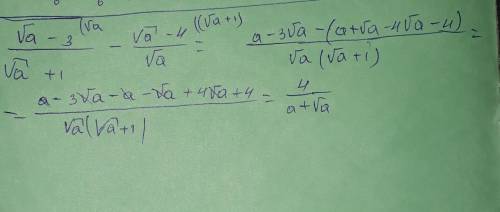 (√a - 3)/(√a + 1) (√a - (√a - 4)/√a ((√a + 1) = (a - 3√a - (a + √a - 4√a - 4))/(√a (√a + 1)) =
= (a - 3√a - a - √a + 4√a + 4)/(√a (√a + 1|) = 4/(a + √a)